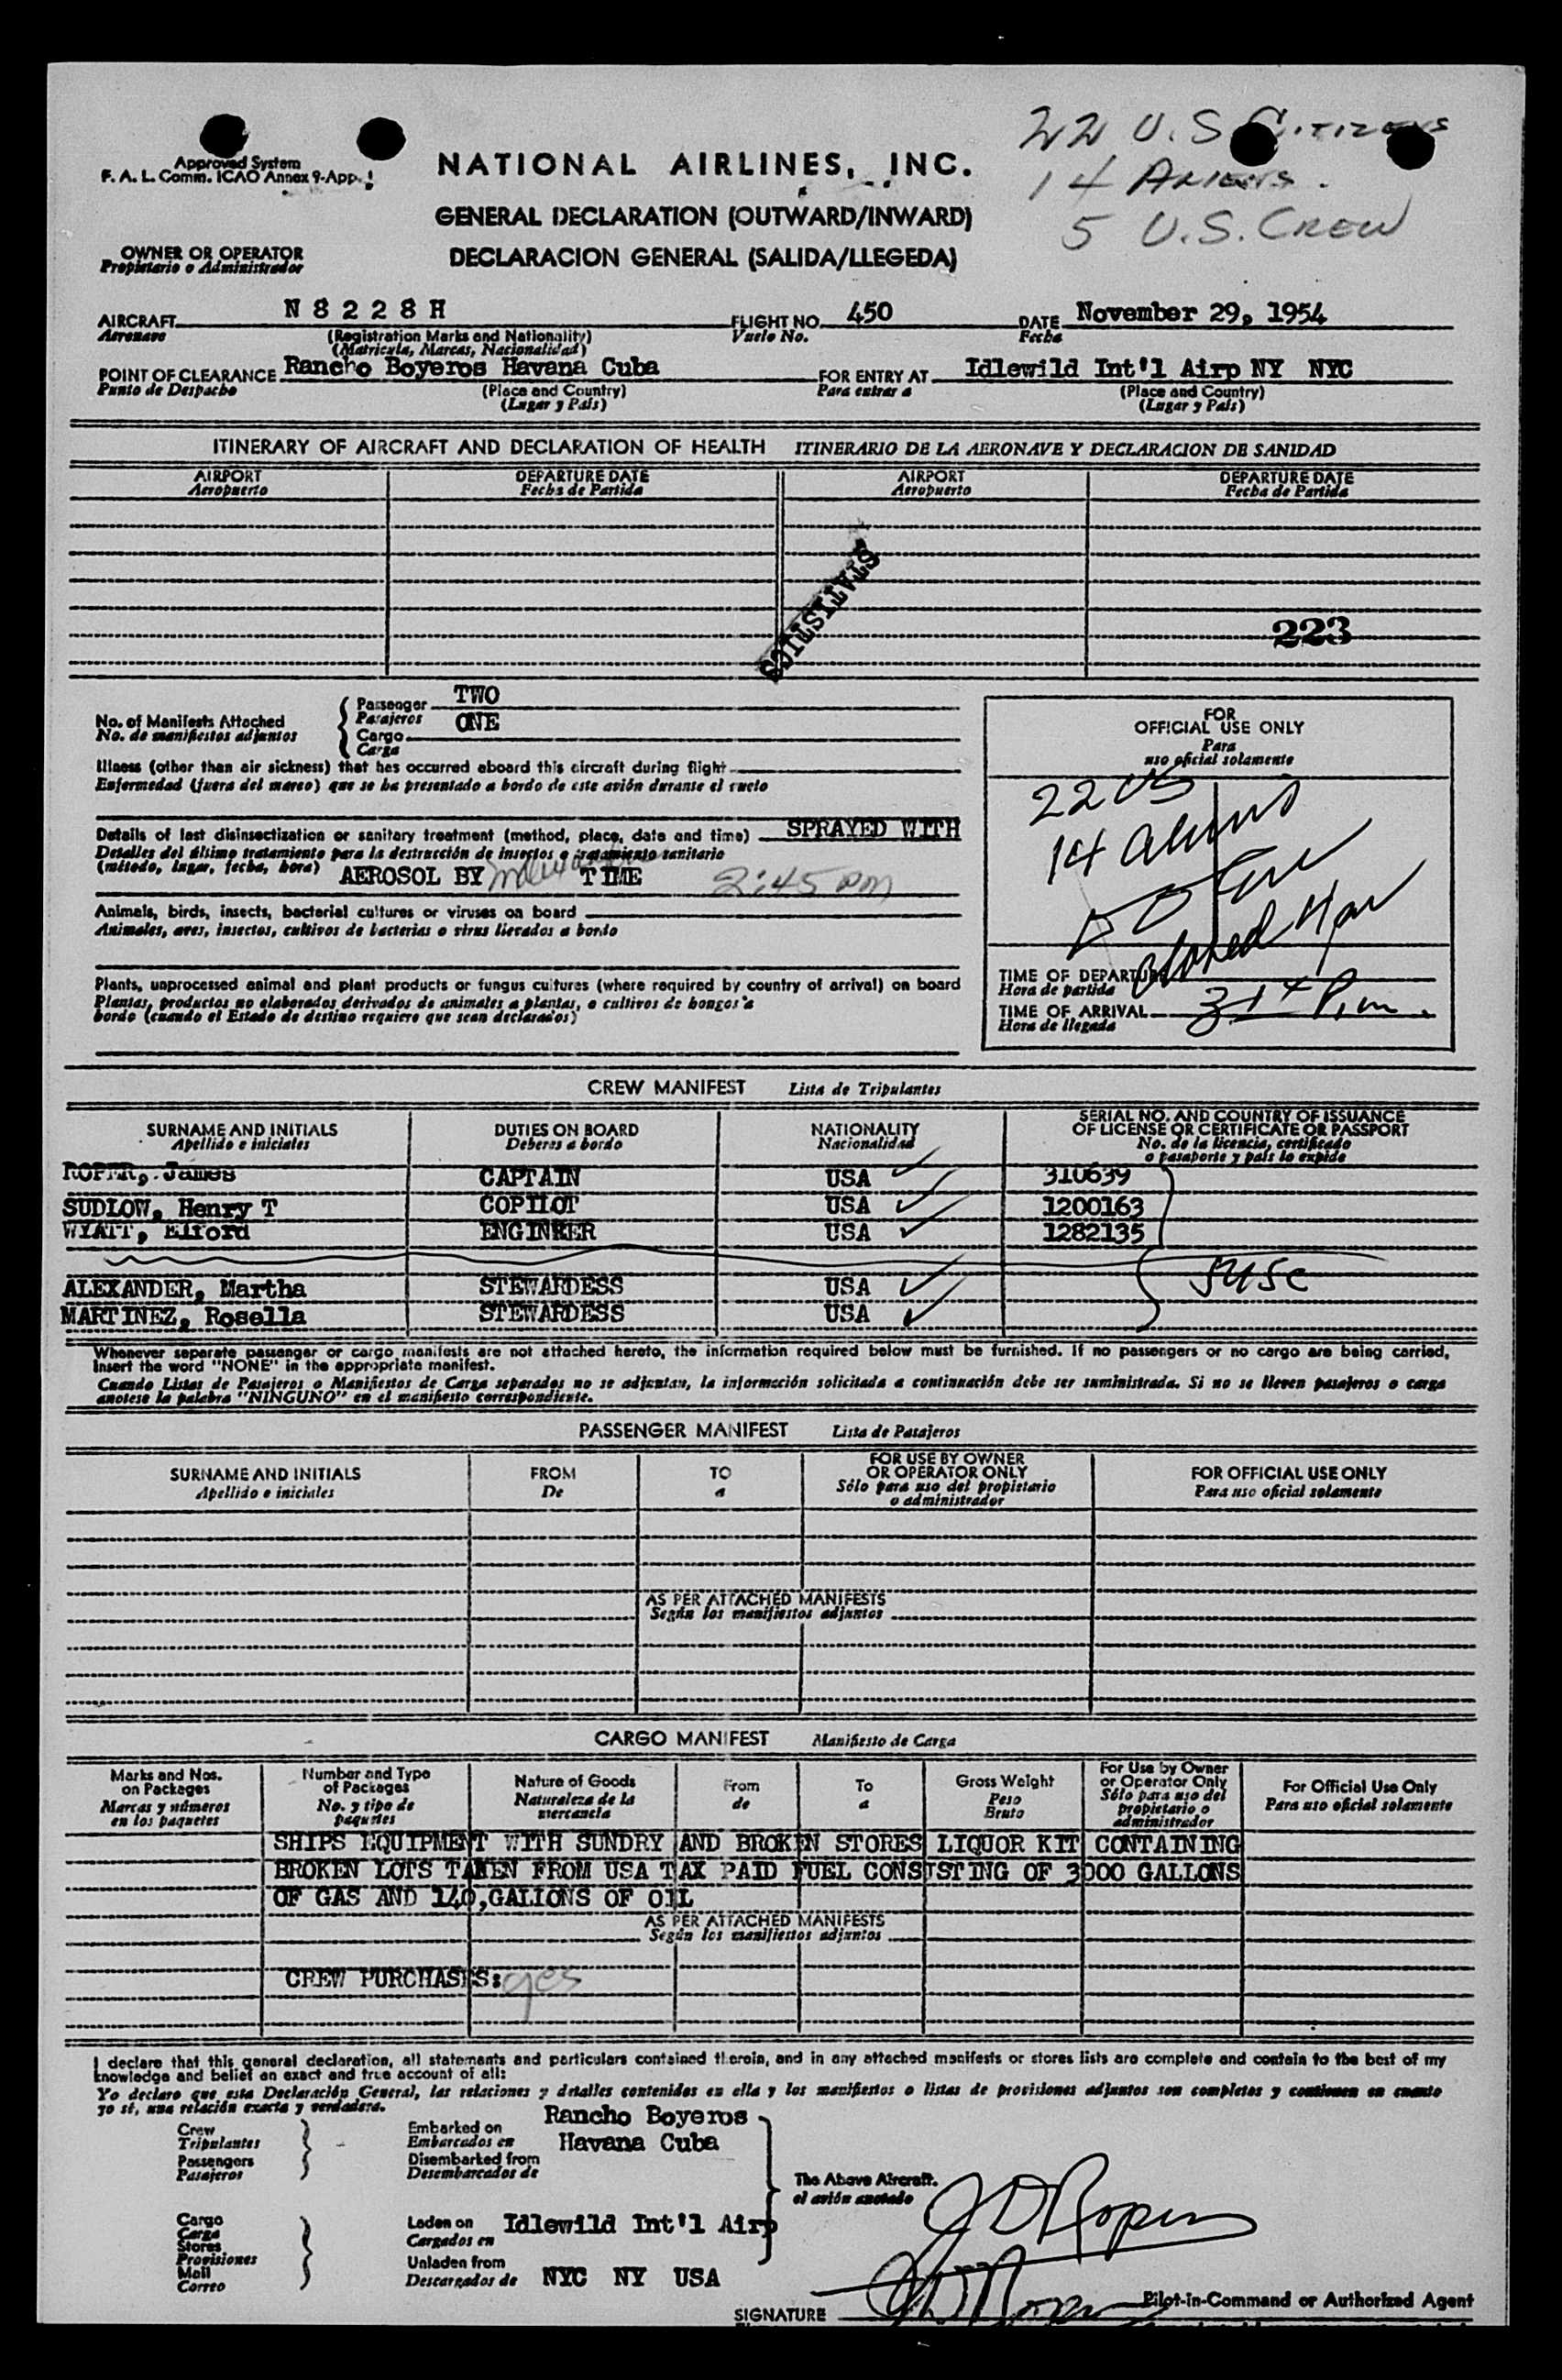 22 U.S. Citizens
14 Aliens.
5 U.S. Crew
Approved System
F. A. L. Comm. ICAO Annex 9-App. 1
NATIONAL AIRLINES, INC.
GENERAL DECLARATION (OUTWARD/INWARD)
DECLARACION GENERAL (SALIDA/LLEGEDA)
OWNER OR OPERATOR
Propietario o Administrador
AIRCRAFT N 8 2 2 8 H FLIGHT NO. 450 DATE November 29, 1954
Aeronave (Registration Marks and Nationality) Vuelo No. Fecha
(Matricula, Marcas, Nacionalidad)
POINT OF CLEARANCE Rancho Boyeros Havana Cuba FOR ENTRY AT Idlewild Int'l Airp NY NYC
Punto de Despacho (Place and Country) Para entrar a (Place and Country)
(Lugar y País) (Lugar y País)
ITINERARY OF AIRCRAFT AND DECLARATION OF HEALTH ITINERARIO DE LA AERONAVE Y DECLARACION DE SANIDAD
AIRPORT DEPARTURE DATE AIRPORT DEPARTURE DATE
Aeropuerto Fecha de Partida Aeropuerto Fecha de Partida
STATISTICS
223
No. of Manifests Attached Passenger TWO
No. de manifiestos adjuntos Pasajeros
Cargo ONE
Carga
Illness (other than air sickness) that has occurred aboard this aircraft during flight
Enfermedad (fuera del mareo) que se ha presentado a bordo de este avión durante el vuelo
Details of last disinsectization or sanitary treatment (method, place, date and time) SPRAYED WITH
Detalles del último tratamiento para la destrucción de insectos o tratamiento sanitario
(método, lugar, fecha, hora) AEROSOL BY TIME 2:45 pm
Animals, birds, insects, bacterial cultures or viruses on board
Animales, aves, insectos, cultivos de bacterias o virus llevados a bordo
Plants, unprocessed animal and plant products or fungus cultures (where required by country of arrival) on board
Plantas, productos no elaborados derivados de animales a plantas, o cultivos de hongos a
bordo (cuando el Estado de destino requiere que sean declarados)
FOR
OFFICIAL USE ONLY
Para
uso oficial solamente
22 US
14 aliens
TIME OF DEPARTURE
Hora de partida
TIME OF ARRIVAL
Hora de llegada
CREW MANIFEST Lista de Tripulantes
SURNAME AND INITIALS DUTIES ON BOARD NATIONALITY SERIAL NO. AND COUNTRY OF ISSUANCE
OF LICENSE OR CERTIFICATE OR PASSPORT
Apellido e iniciales Deberes a bordo Nacionalidad No. de la licencia, certificado
o pasaporte y país lo expide
ROPER, James CAPTAIN USA 310639
SUDLOW, Henry T COPILOT USA 1200163
WYATT, Elford ENGINEER USA 1282135
ALEXANDER, Martha STEWARDESS USA 5USC
MARTINEZ, Rosella STEWARDESS USA
Whenever separate passenger or cargo manifests are not attached hereto, the information required below must be furnished. If no passengers or no cargo are being carried,
Insert the word "NONE" in the appropriate manifest.
Cuando Listas de Pasajeros o Manifiestos de Carga separados no se adjuntan, la información solicitada a continuación debe ser suministrada. Si no se lleven pasajeros o carga
anotese la palabra "NINGUNO" en el manifiesto correspondiente.
PASSENGER MANIFEST Lista de Pasajeros
SURNAME AND INITIALS FROM TO FOR USE BY OWNER
OR OPERATOR ONLY FOR OFFICIAL USE ONLY
Apellido e iniciales De a Sólo para uso del propietario
o administrador Para uso oficial solamente
AS PER ATTACHED MANIFESTS
Según los manifiestos adjuntos
CARGO MANIFEST Manifiesto de Carga
Marks and Nos.
on Packages
Marcas y números
en los paquetes
Number and Type
of Packages
No. y tipo de
paquetes
Nature of Goods
Naturaleza de la
mercancia
From
de
To
a
Gross Weight
Peso
Bruto
For Use by Owner
or Operator Only
Sólo para uso del
propietario o
administrador
For Official Use Only
Para uso oficial solamente
SHIPS EQUIPMENT WITH SUNDRY AND BROKEN STORES LIQUOR KIT CONTAINING
BROKEN LOTS TAKEN FROM USA TAX PAID FUEL CONSISTING OF 3000 GALLONS
OF GAS AND 140,GALLONS OF OIL
AS PER ATTACHED MANIFESTS
Según los manifiestos adjuntos
CREW PURCHASES: yes
I declare that this general declaration, all statements and particulars contained therein, and in any attached manifests or stores lists are complete and contain to the best of my
knowledge and belief an exact and true account of all:
Yo declaro que esta Declaración General, las relaciones y detalles contenidos en ella y los manifiestos o listas de provisiones adjuntos son completos y contienen en cuanto
yo sé, una relación exacta y verdadera.
Crew
Tripulantes
Passengers
Pasajeros
Embarked on Rancho Boyeros
Embarcados en Havana Cuba
Disembarked from
Desembarcados de
The Above Aircraft.
el avión anotado
JD Roper
Cargo
Carga
Stores
Provisiones
Mail
Correo
Laden on Idlewild Int'l Airp
Cargados en
Unladen from
Descargados de NYC NY USA
SIGNATURE JD Roper Pilot-in-Command or Authorized Agent